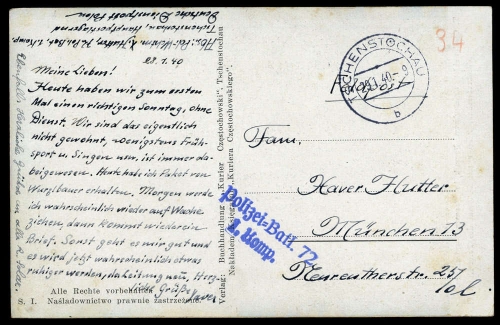 Hutter
Tschenstochau, Hauptpostlagernd
Deutsche Dienstpost Polen
28.1.40
Meine Lieben!
Heute haben wir zum ersten
Mal einen richtigen Sonntag, ohne
Dienst. Wir sind das eigentlich
nicht gewohnt, wenigstens Früh-
sport u. Singen usw. ist immer da-
beigewesen. Heute habe ich Paket von
Wurzlbauer erhalten. Morgen werde
ich wahrscheinlich wieder auf Wache
ziehen, dann kommt wieder ein
Brief. Sonst geht es mir gut und
es wird jetzt wahrscheinlich etwas
ruhiger werden, da Leitung neu, Herz-
liche Grüße
Xaver
Ebenfalls herzliche Grüße an alle
Alle Rechte vorbehalten
S. I. Naśladownictwo prawnie zastrzeżone.
Verlag: Buchhandlung „Kurier Częstochowski", Tschenstochau
Nakładem Księgarni „Kuriera Częstochowskiego".
TSCHENSTOCHAU
28.1.40.
b
Feldpost
34
Fam.
Xaver Hutter
München 13
Neureutherstr. 25/
Polizei-Batl. 72
1. Komp.